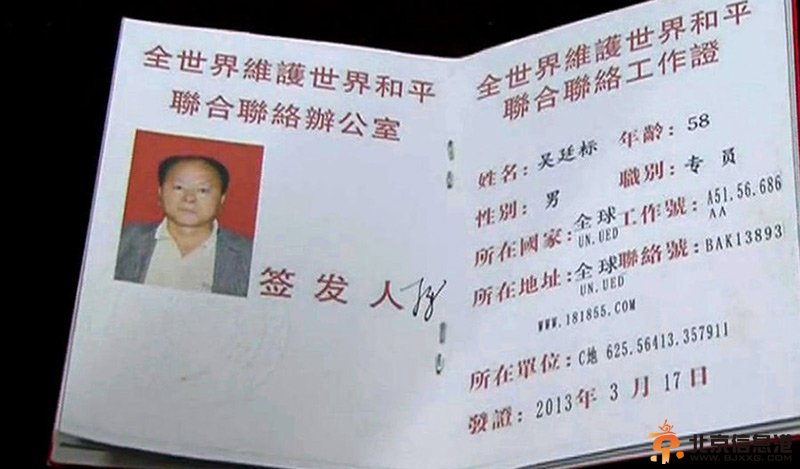 全世界維護世界和平
聯合聯絡辦公室
签发人
全世界維護世界和平
聯合聯絡工作證
姓名：吴廷标 年齡：58
性别：男 職别：专员
所在國家：全球 工作號：A51.56.686
UN.UED AA
所在地址：全球 聯絡號：BAK13893
UN.UED
WWW.181855.COM
所在單位：C地 625.56413.357911
發證：2013年3月17日
北京信息港
WWW.BJXXG.COM